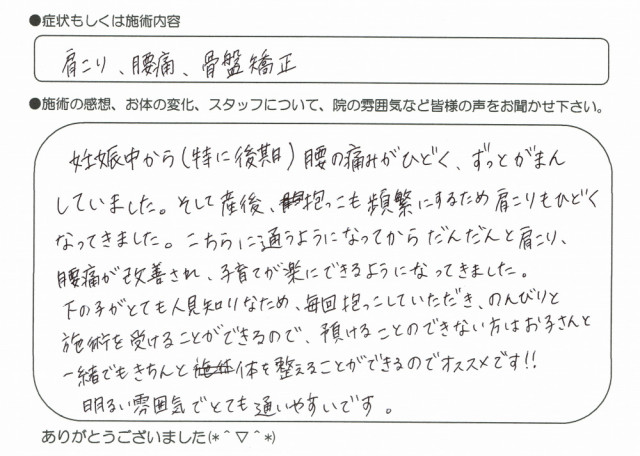 ●症状もしくは施術内容
肩こり、腰痛、骨盤矯正
●施術の感想、お体の変化、スタッフについて、院の雰囲気など皆様の声をお聞かせ下さい。
妊娠中から(特に後期)腰の痛みがひどく、ずっとがまん
していました。そして産後、抱っこも頻繁にするため肩こりもひどく
なってきました。こちらに通うようになってからだんだんと肩こり、
腰痛が改善され、子育てが楽にできるようになってきました。
下の子がとても人見知りなため、毎回抱っこしていただき、のんびりと
施術を受けることができるので、預けることのできない方はお子さんと
一緒でもきちんと体を整えることができるのでオススメです!!
明るい雰囲気でとても通いやすいです。
ありがとうございました(*＾▽＾*)